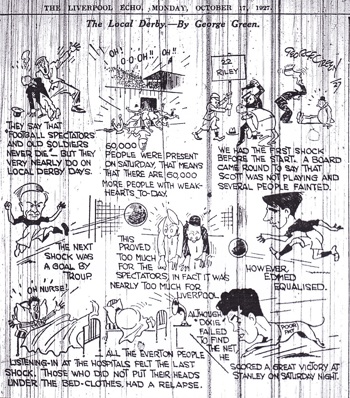 THE LIVERPOOL ECHO, MONDAY, OCTOBER 17, 1927.
The Local Derby.—By George Green.
OH!
O-O-OH!!
OH!!
22
RILEY
GEORGE GREEN
THEY SAY THAT
"FOOTBALL SPECTATORS
AND OLD SOLDIERS
NEVER DIE". BUT THEY
VERY NEARLY DO ON
LOCAL DERBY DAYS.
60,000
PEOPLE WERE PRESENT
ON SATURDAY, THAT MEANS
THAT THERE ARE 60,000
MORE PEOPLE WITH WEAK-
HEARTS TO-DAY.
WE HAD THE FIRST SHOCK
BEFORE THE START. A BOARD
CAME ROUND TO SAY THAT
SCOTT WAS NOT PLAYING AND
SEVERAL PEOPLE FAINTED.
THE NEXT
SHOCK WAS
A GOAL BY
TROUP.
THIS
PROVED
TOO MUCH
FOR THE
SPECTATORS, IN FACT IT WAS
NEARLY TOO MUCH FOR
LIVERPOOL
HOWEVER,
EDMED
EQUALISED.
OH NURSE!
ALL THE EVERTON PEOPLE
LISTENING-IN AT THE HOSPITALS FELT THE LAST
SHOCK. THOSE WHO DID NOT PUT THEIR HEADS
UNDER THE BED-CLOTHES, HAD A RELAPSE.
ALTHOUGH
"DIXIE"
FAILED
TO FIND
THE NET,
HE
SCORED A GREAT VICTORY AT
STANLEY ON SATURDAY NIGHT.